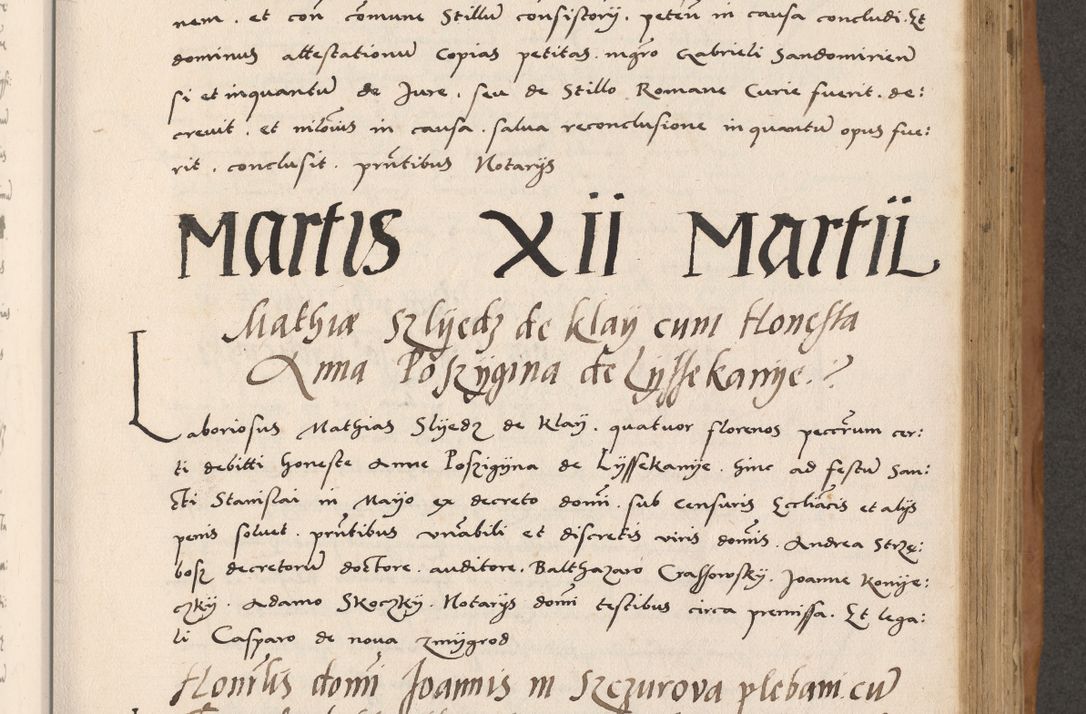 nem, et con comune Stillu consistorij, peten in causa concludi. Et
dominus attestationu Copias petitas. mgro Gabrieli Sandomirien
si et inquantu de Jure, seu de Stillo Romane Curie fuerit. de:
crevit, et nilouius in causa. salva reconclusione inquantu opus fue:
rit, conclusit. pntibus Notarijs
Martis XII Martii
Mathiæ Szlyedz de Klay cum Honesta
Anna Poszygina de Lyssekanye.
Laboriosus Mathias Slyedz de Klay. quatuor florenos peccrum cer:
ti debitti honeste Anne Poszigyna de Lyssekanye. hinc ad festu San:
cti Stanislai in Mayo ex decreto domi. sub censuris Eccliacis et alijs
penis solvet. pntibus vnabili et discretis viris domis. Andrea Strzę:
bosz decretoru doctore. auditore. Balthazaro Crassowsky. Joanne Konye:
czky. Adamo Skoczky. Notarijs domi testibus circa premissa. Et lega:
li Casparo de nova zmygrod
Honrlis domi Joannis in Szczurova plebani cu